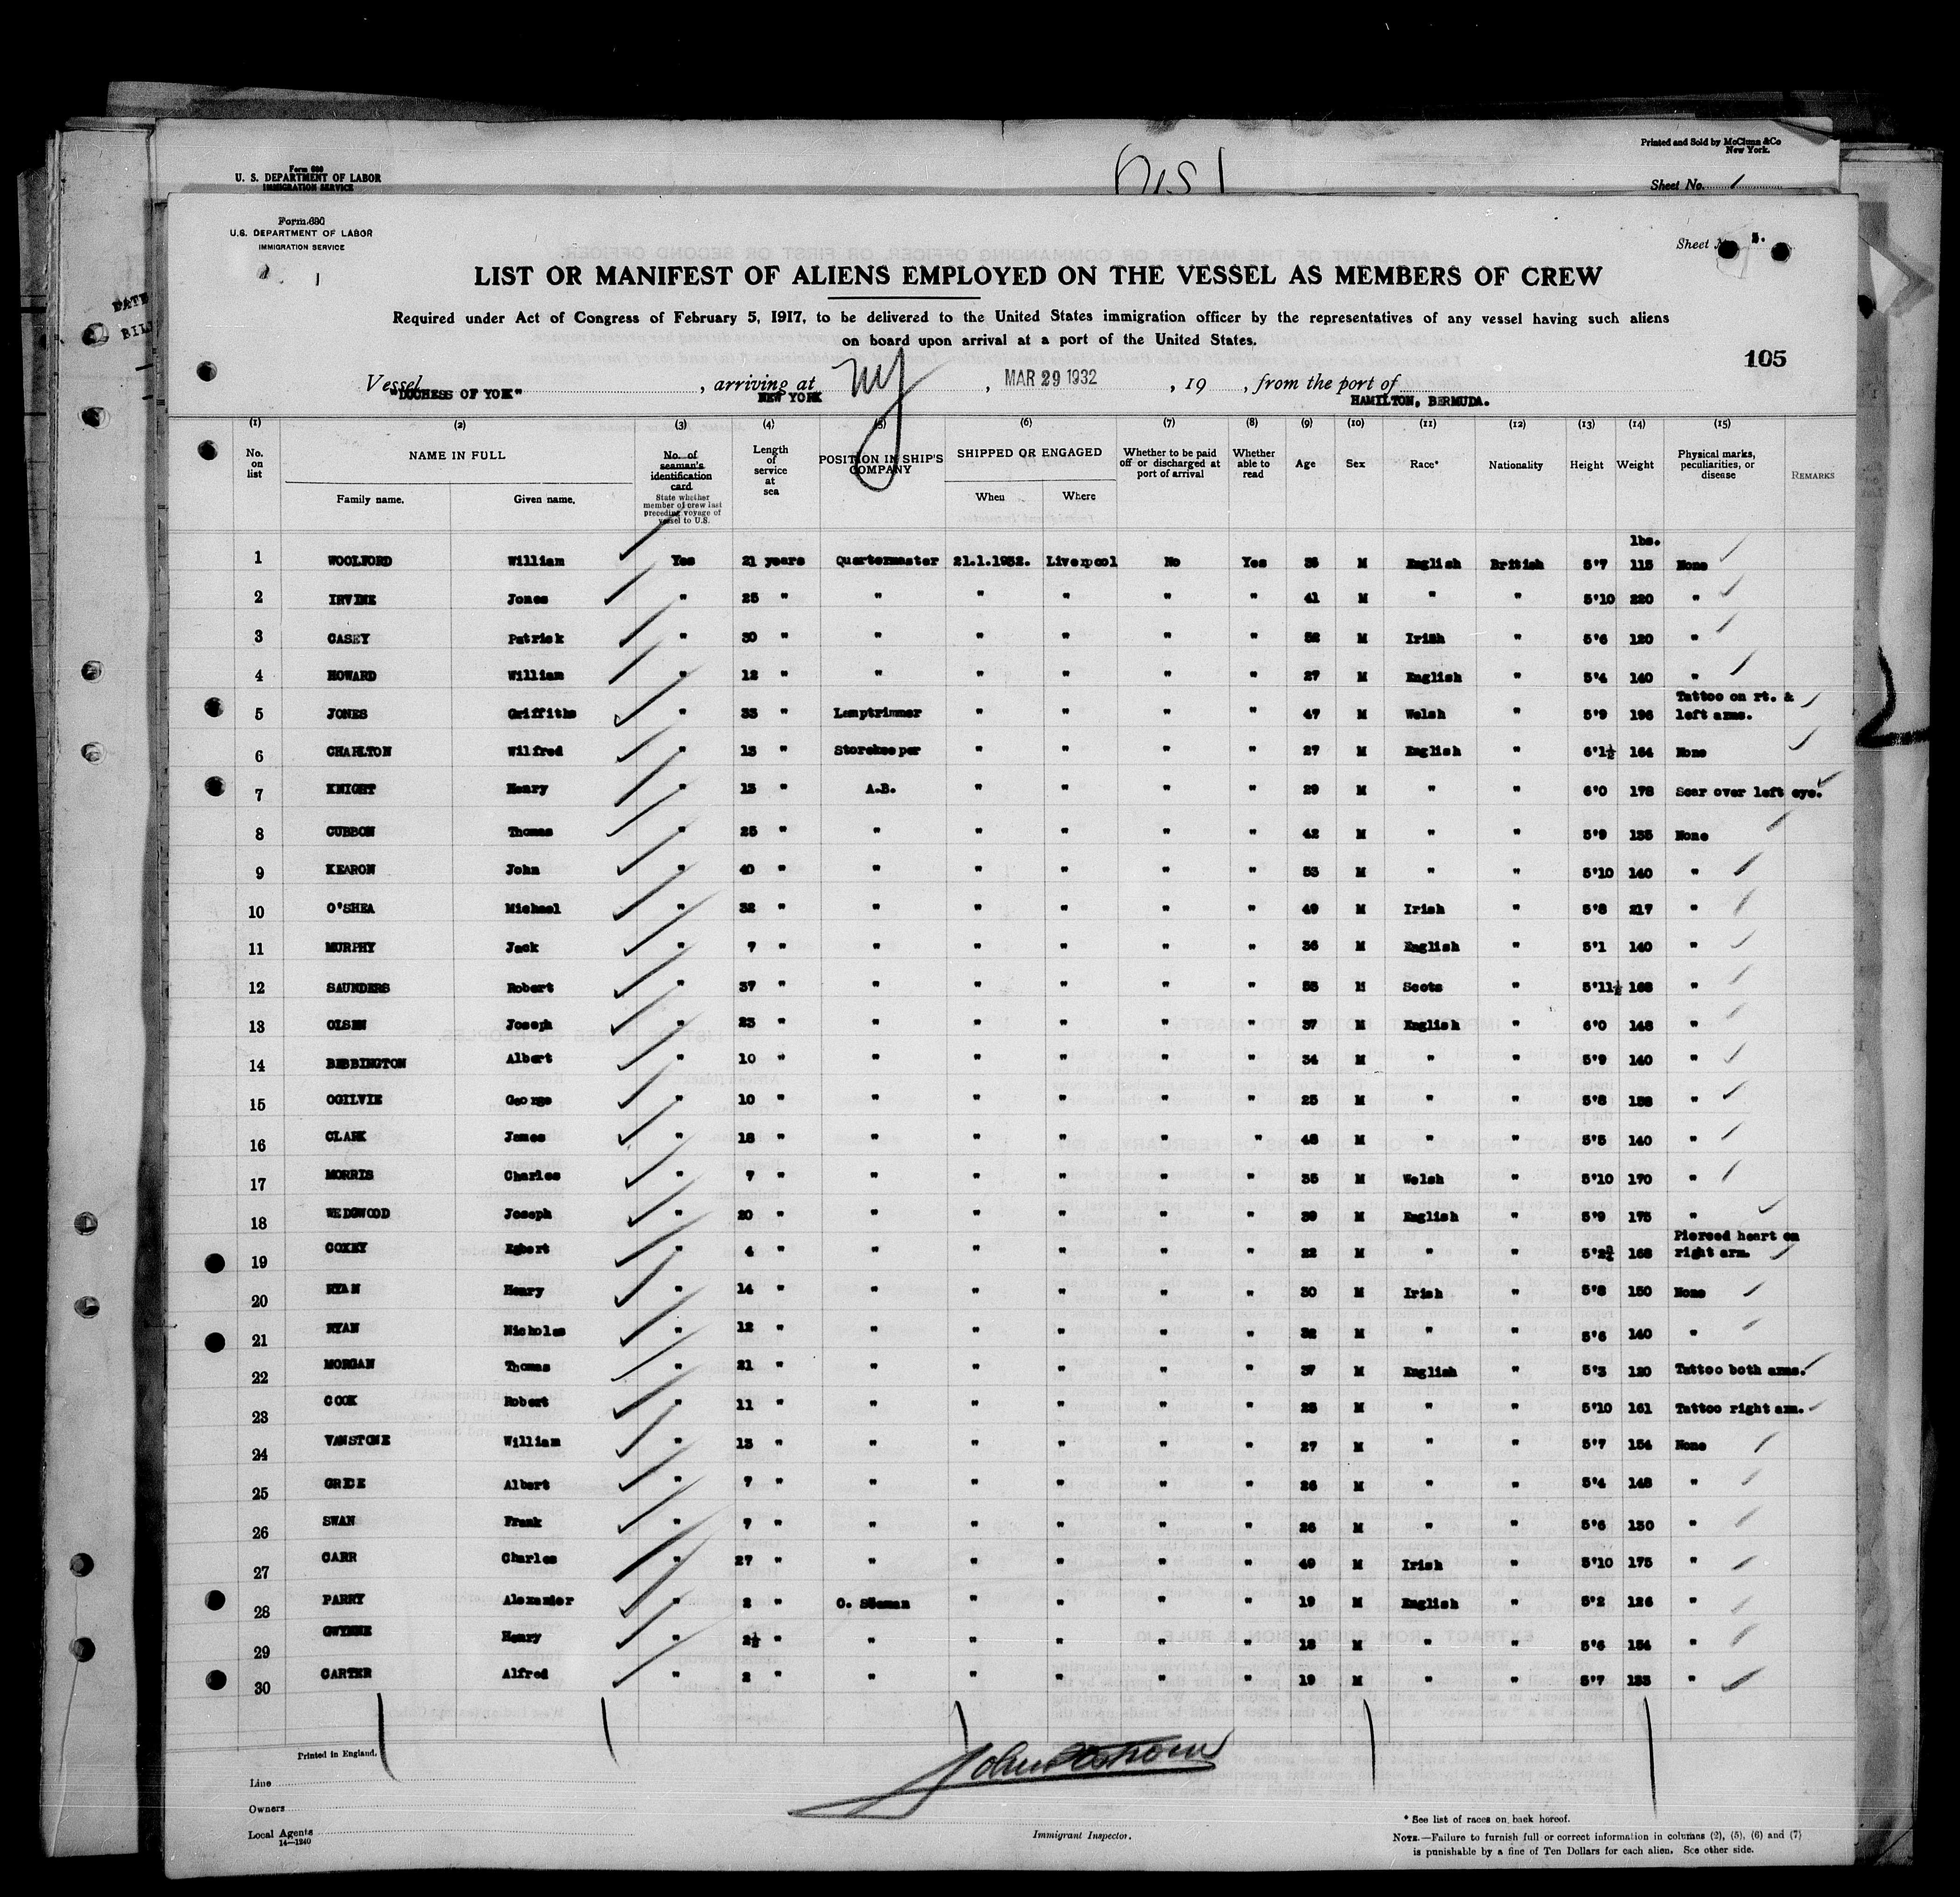 Printed and Sold by McClunn & Co
New York.
Form 690
U. S. DEPARTMENT OF LABOR
IMMIGRATION SERVICE
Sheet No. 1
Form 690
U.S. DEPARTMENT OF LABOR
IMMIGRATION SERVICE
Sheet
LIST OR MANIFEST OF ALIENS EMPLOYED ON THE VESSEL AS MEMBERS OF CREW
Required under Act of Congress of February 5, 1917, to be delivered to the United States immigration officer by the representatives of any vessel having such aliens
on board upon arrival at a port of the United States.
105
Vessel "DUCHESS OF YORK", arriving at NEW YORK NY, MAR 29 1932, 19 , from the port of HAMILTON, BERMUDA.
(1) (2) (3) (4) (5) (6) (7) (8) (9) (10) (11) (12) (13) (14) (15)
No. on list NAME IN FULL Family name. Given name. No. of seaman's identification card State whether member of crew last preceding voyage of vessel to U.S. Length of service at sea POSITION IN SHIP'S COMPANY SHIPPED OR ENGAGED When Where Whether to be paid off or discharged at port of arrival Whether able to read Age Sex Race* Nationality Height Weight Physical marks, peculiarities, or disease REMARKS
lbs.
1 WOOLFORD William Yes 21 years Quartermaster 21.1.1932. Liverpool No Yes 36 M English British 5'7 115 None
2 IRVINE Jones " 25 " " " " " " 41 M " " 5'10 220 "
3 CASEY Patrick " 30 " " " " " " 52 M Irish " 5'6 120 "
4 HOWARD William " 12 " " " " " " 27 M English " 5'4 140 "
5 JONES Griffiths " 33 " Lamptrimmer " " " " 47 M Welsh " 5'9 196 Tattoo on rt. & left arms.
6 CHARLTON Wilfred " 13 " Storekeeper " " " " 27 M English " 6'1½ 164 None
7 KNIGHT Henry " 13 " A.B. " " " " 29 M " " 6'0 178 Scar over left eye.
8 CUBBON Thomas " 25 " " " " " " 42 M " " 5'9 135 None
9 KEARON John " 40 " " " " " " 53 M " " 5'10 140 "
10 O'SHEA Michael " 32 " " " " " " 49 M Irish " 5'8 217 "
11 MURPHY Jack " 7 " " " " " " 36 M English " 5'1 140 "
12 SAUNDERS Robert " 37 " " " " " " 55 M Scots " 5'11½ 168 "
13 OLSEN Joseph " 23 " " " " " " 37 M English " 6'0 148 "
14 BEBBINGTON Albert " 10 " " " " " " 34 M " " 5'9 140 "
15 OGILVIE George " 10 " " " " " " 25 M " " 5'8 158 "
16 CLARK James " 18 " " " " " " 48 M " " 5'5 140 "
17 MORRIS Charles " 7 " " " " " " 35 M Welsh " 5'10 170 "
18 WEDGWOOD Joseph " 20 " " " " " " 39 M English " 5'9 175 "
19 COXEY Egbert " 4 " " " " " " 22 M " " 5'2¾ 168 Pierced heart on right arm.
20 RYAN Henry " 14 " " " " " " 30 M Irish " 5'8 150 None
21 RYAN Nicholas " 12 " " " " " " 32 M " " 5'6 140 "
22 MORGAN Thomas " 21 " " " " " " 37 M English " 5'3 120 Tattoo both arms.
23 COOK Robert " 11 " " " " " " 28 M " " 5'10 161 Tattoo right arm.
24 VANSTONE William " 13 " " " " " " 27 M " " 5'7 154 None
25 GRICE Albert " 7 " " " " " " 26 M " " 5'4 148 "
26 SWAN Frank " 7 " " " " " " 26 M " " 5'6 130 "
27 CARR Charles " 27 " " " " " " 49 M Irish " 5'10 175 "
28 PARRY Alexander " 2 " O. Seaman " " " " 19 M English " 5'2 126 "
29 GWYNNE Henry " 2½ " " " " " " 18 M " " 5'6 154 "
30 CARTER Alfred " 2 " " " " " " 19 M " " 5'7 133 "
Printed in England.
Line
Owners
Local Agents
14—1240
Immigrant Inspector.
* See list of races on back hereof.
NOTE.—Failure to furnish full or correct information in columns (2), (5), (6) and (7)
is punishable by a fine of Ten Dollars for each alien. See other side.